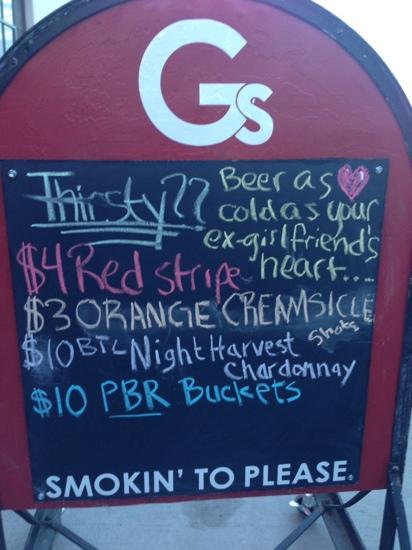 Gs
Thirsty??
Beer as
cold as your
ex-girlfriend's
heart....
$4 Red stripe
$3 ORANGE CREAMSICLE
Shots
$10 BTL Night Harvest
Chardonnay
$10 PBR Buckets
SMOKIN' TO PLEASE.